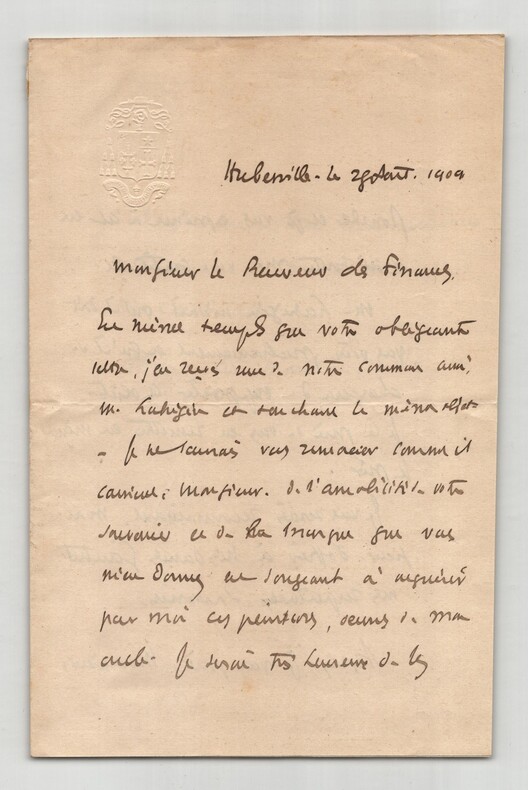 Huberville. le 29 Août. 1909
Monsieur le Receveur des Finances,
En même temps que votre obligeante
lettre, j'en reçois une de notre commun ami,
M. et touchant le même objet
- Je ne saurais vous remercier comme il
convient, Monsieur, de l'amabilité de votre
souvenir et de la marque que vous
m'en donnez en songeant à acquérir
pour moi ces peintures, œuvres de mon
oncle. Je serai très heureux de les